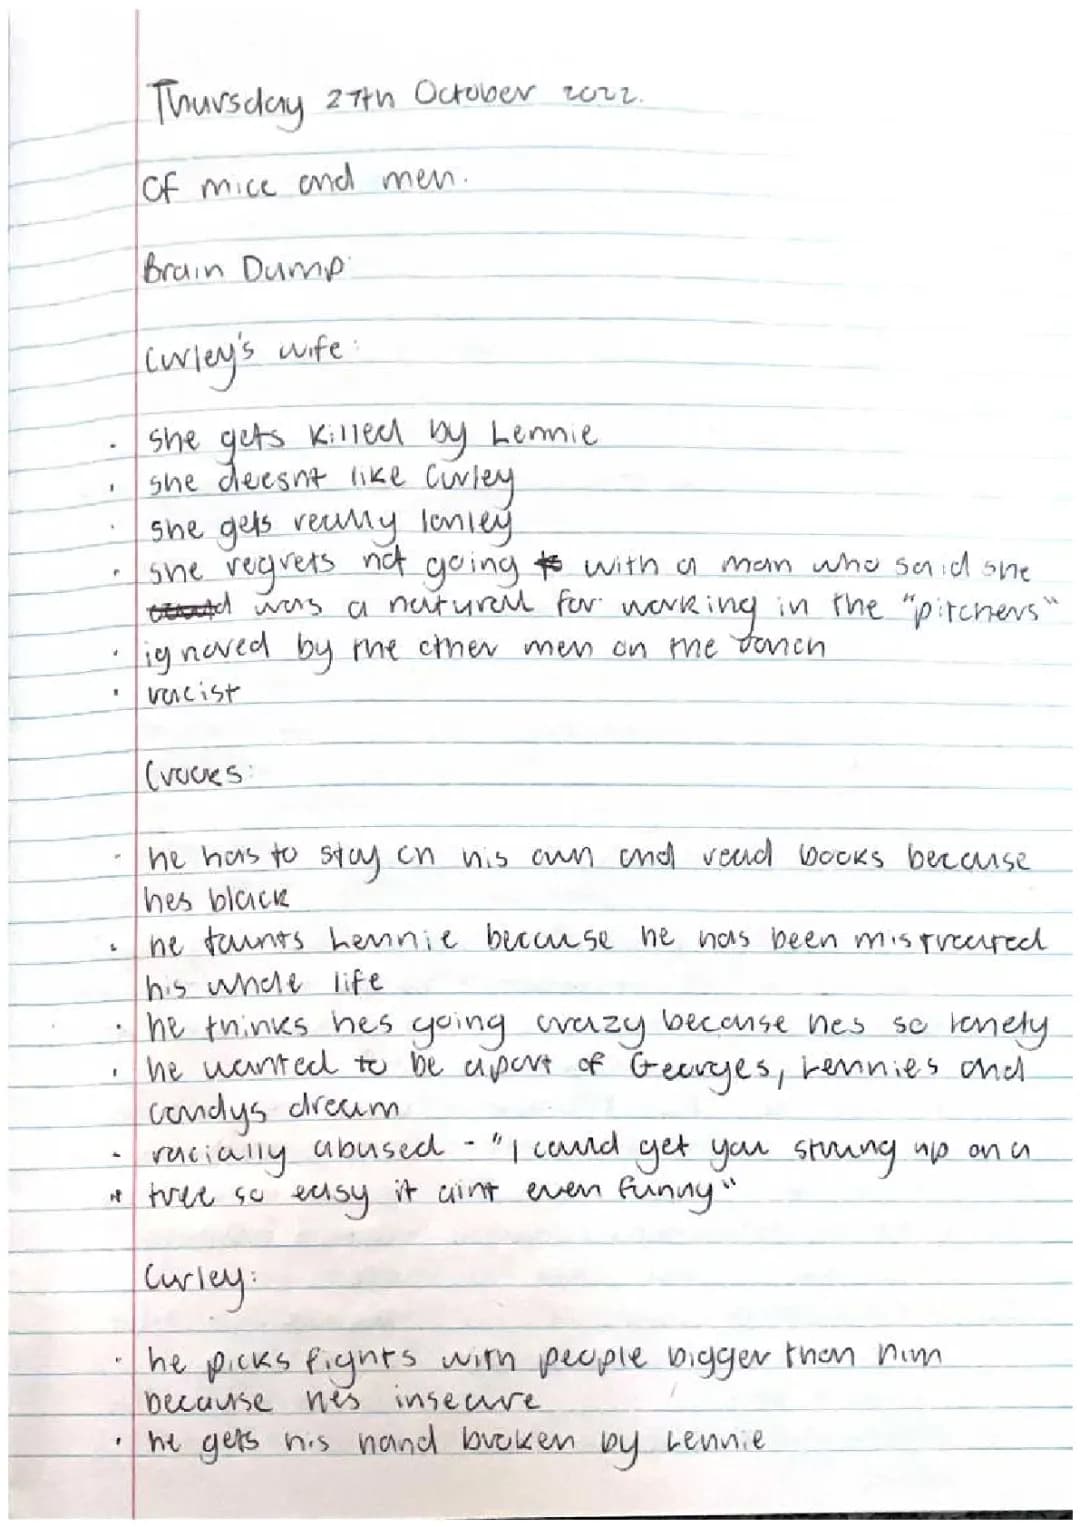 Thursday 27th October 2022.
Of mice and men.
Brain Dump
Curley's wife:
· she gets killed by Lennie
· she doesnt like Curley
· she gets really lonley
· she regrets not going with a man who said she
was a natural for working in the "pitchers"
· ignored by the other men on the ranch
· racist
Crooks:
- he has to stay on his own and read books because
hes black
· he taunts Lennie because he has been mistreated
his whole life
· he thinks hes going crazy because hes so lonely
· he wanted to be apart of Georges, Lennies and
candys dream
- racially abused - "I could get you strung up on a
* tree so easy it aint even funny"
Curley:
· he picks fights with people bigger than him
because hes insecure
· he gets his hand broken by Lennie